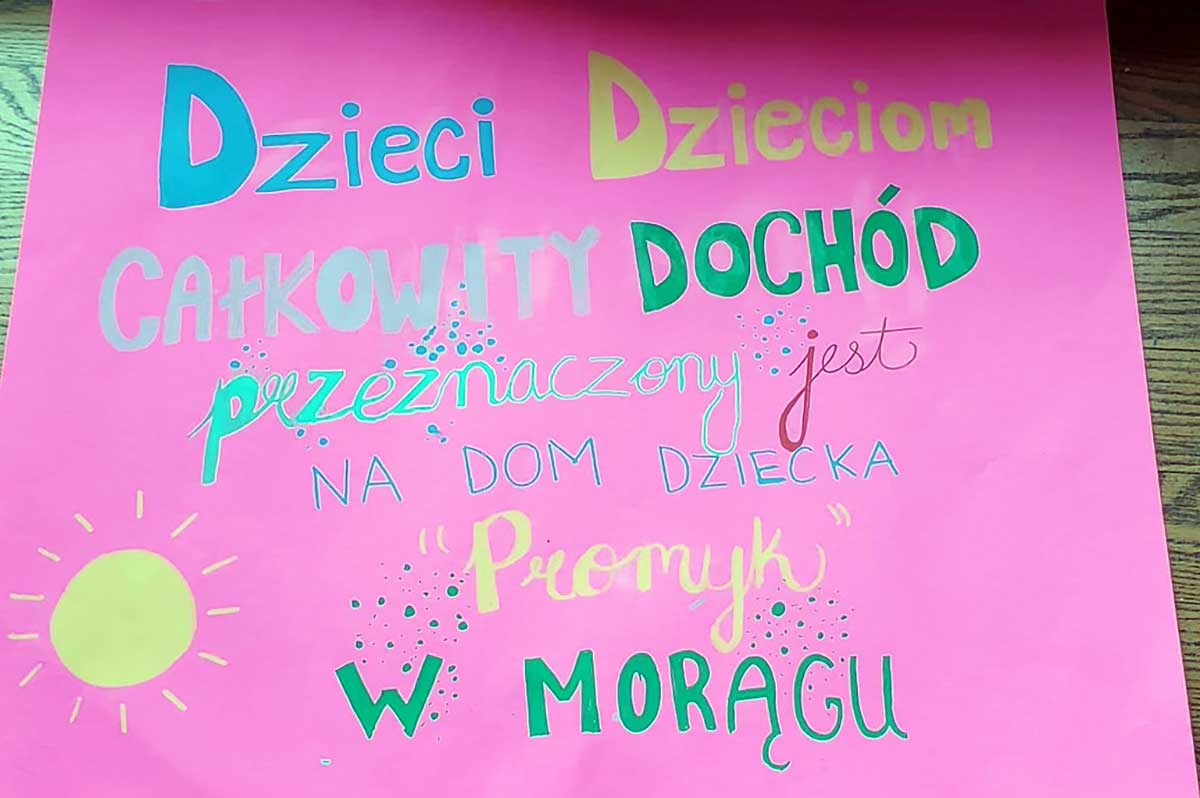 Dzieci Dzieciom
CAŁKOWITY DOCHÓD
przeznaczony jest
NA DOM DZIECKA
"Promyk"
W MORĄGU